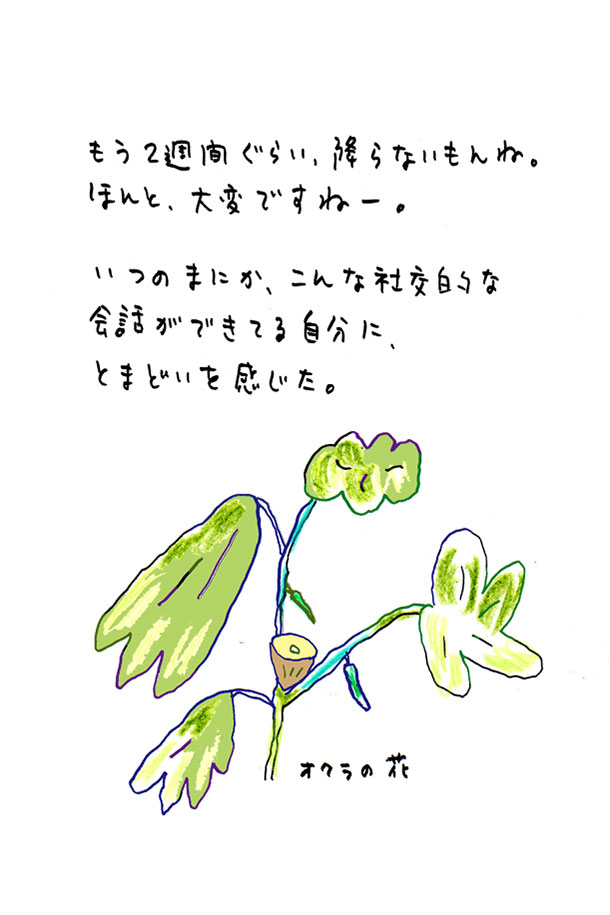 もう2週間ぐらい、降らないもんね。
ほんと、大変ですねー。
いつのまにか、こんな社交的な
会話ができてる自分に、
とまどいを感じた。
オクラの花